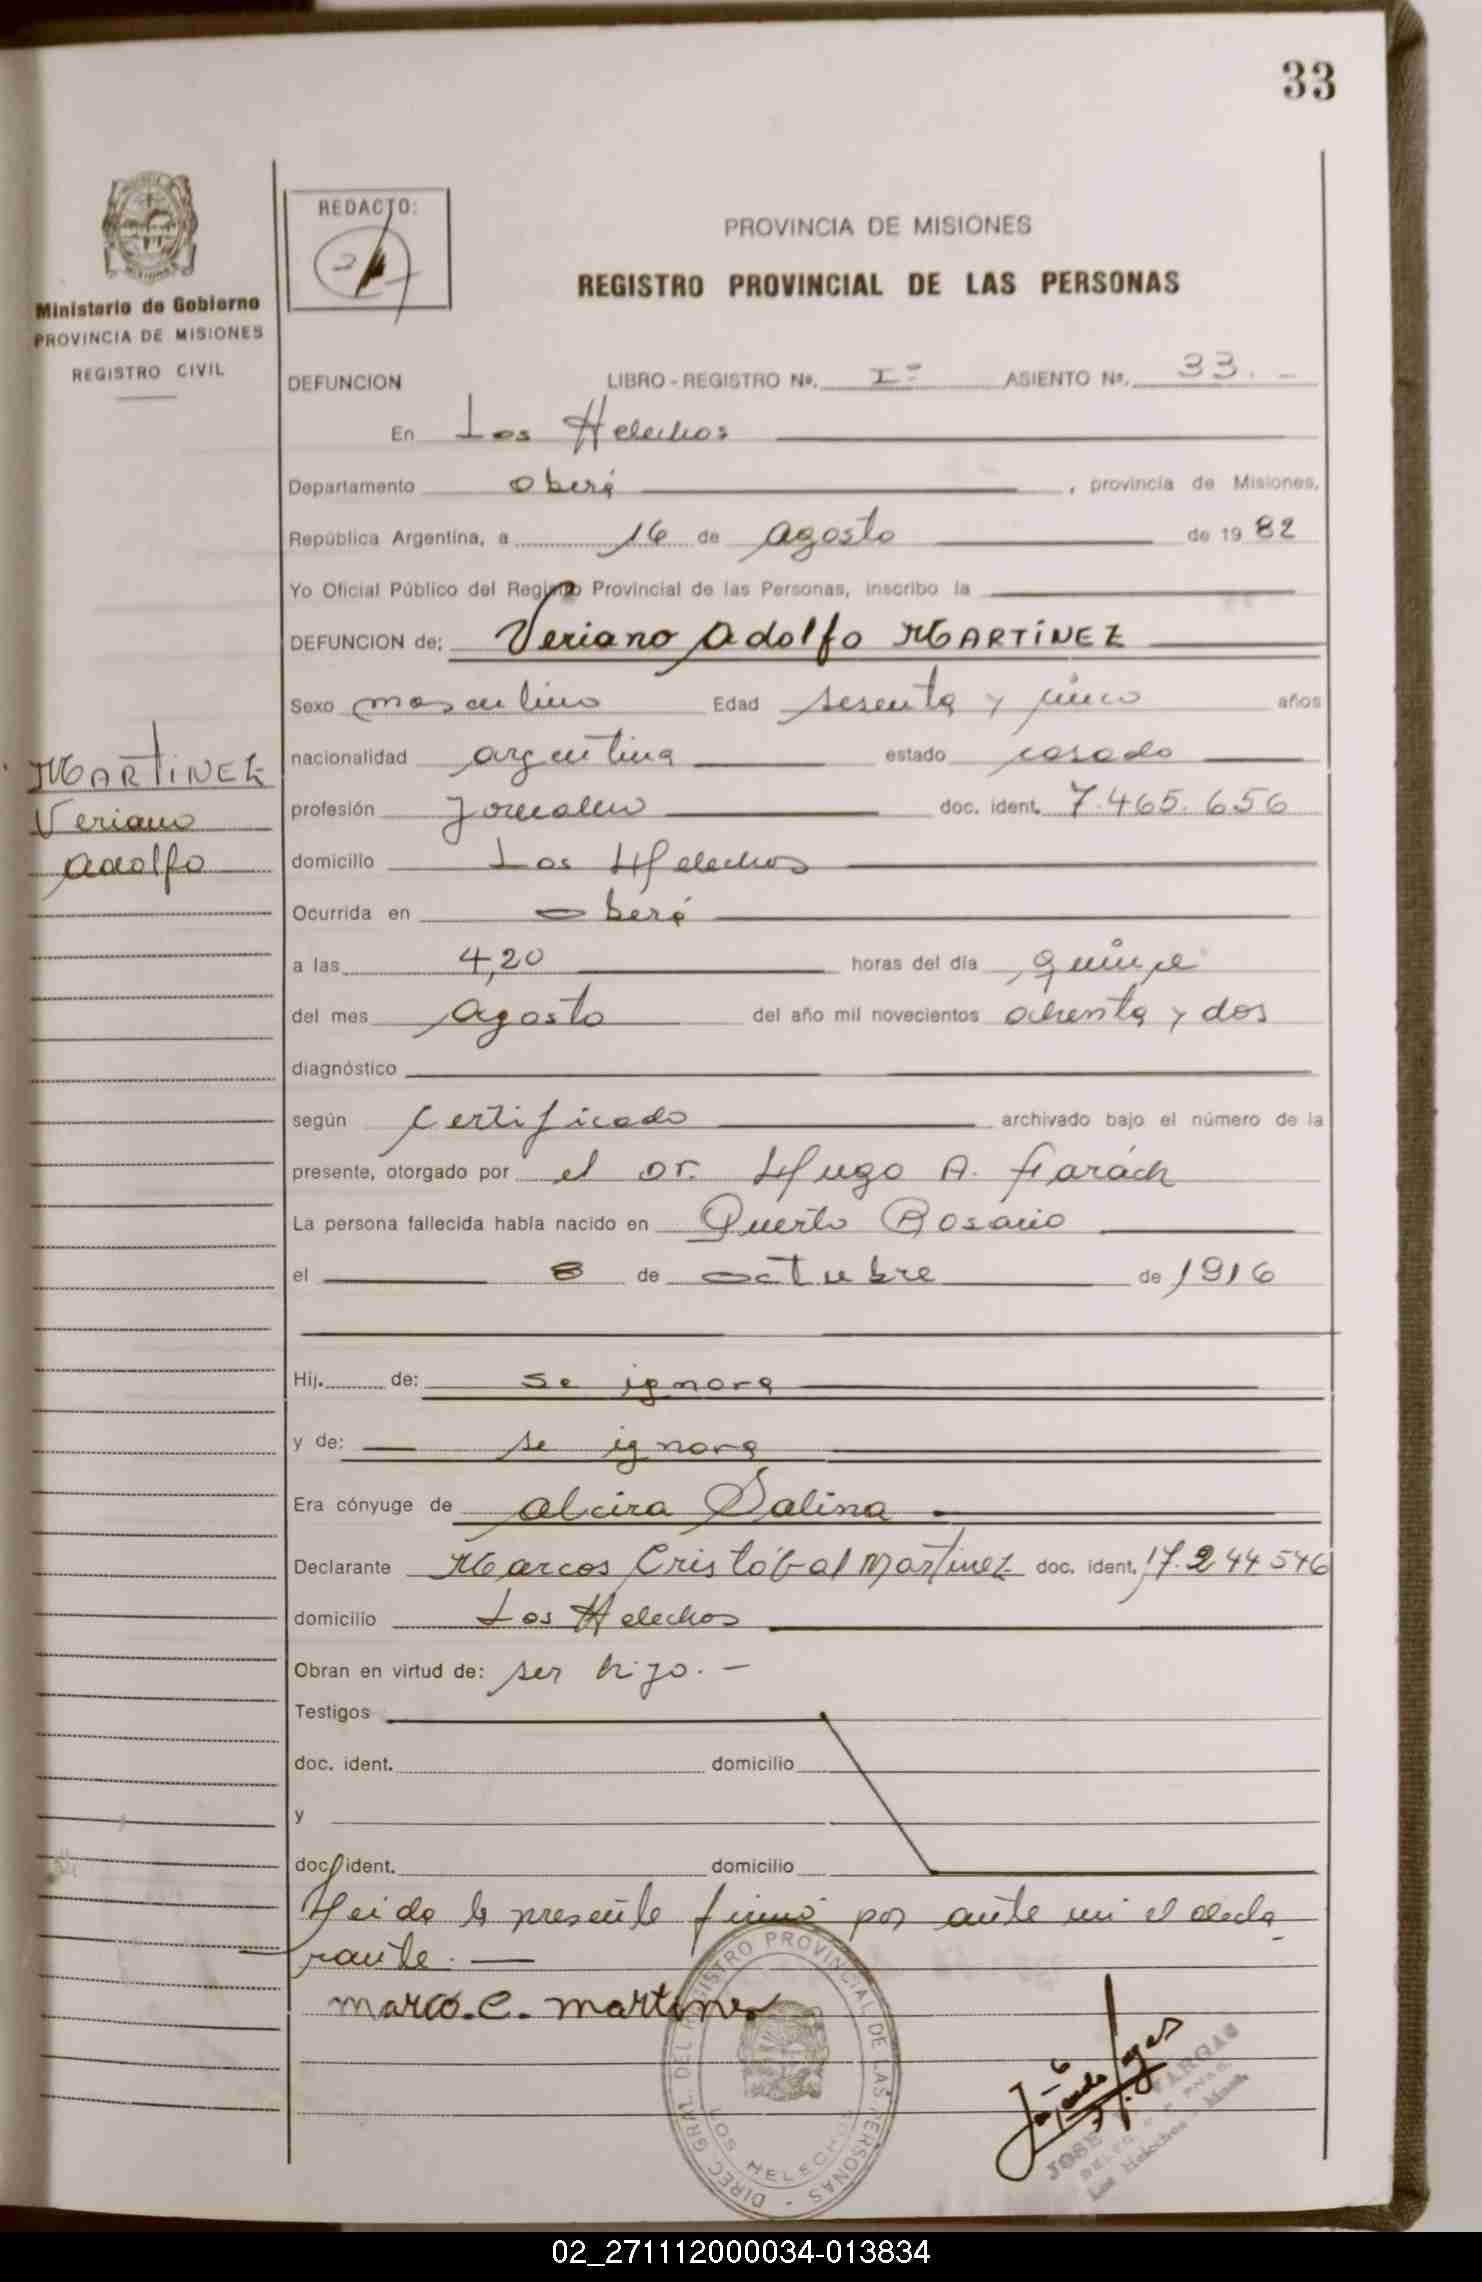 33
REDACTO:
PROVINCIA DE MISIONES
REGISTRO PROVINCIAL DE LAS PERSONAS
Ministerio de Gobierno
PROVINCIA DE MISIONES
REGISTRO CIVIL
DEFUNCION LIBRO - REGISTRO Nº. Iº ASIENTO Nº. 33. -
En Los Helechos
Departamento Oberá , provincia de Misiones,
República Argentina, a 16 de agosto de 1982
Yo Oficial Público del Registro Provincial de las Personas, inscribo la
DEFUNCION de: Veriano Adolfo MARTÍNEZ
Sexo masculino Edad sesenta y cinco años
nacionalidad argentina estado casado
MARTINEZ
Veriano
Adolfo
profesión Jornalero doc. ident. 7.465.656
domicilio Los Helechos
Ocurrida en Oberá
a las 4,20 horas del día quince
del mes agosto del año mil novecientos ochenta y dos
diagnóstico
según Certificado archivado bajo el número de la
presente, otorgado por el Dr. Hugo A. Farách
La persona fallecida había nacido en Puerto Rosario
el 8 de octubre de 1916
Hij. de: se ignora
y de: se ignora
Era cónyuge de Alcira Salina
Declarante Marcos Cristóbal Martinez doc. ident. 17.244546
domicilio Los Helechos
Obran en virtud de: ser hijo. -
Testigos
doc. ident. domicilio
y
doc. ident. domicilio
Leida la presente firmó por ante mi el decla
rante. -
marco. C. martines
DIREC. GRAL. DEL REGISTRO PROVINCIAL DE LAS PERSONAS -
LOS HELECHOS
JOSE VARGAS
Los Helechos - Mnes.
02_271112000034-013834